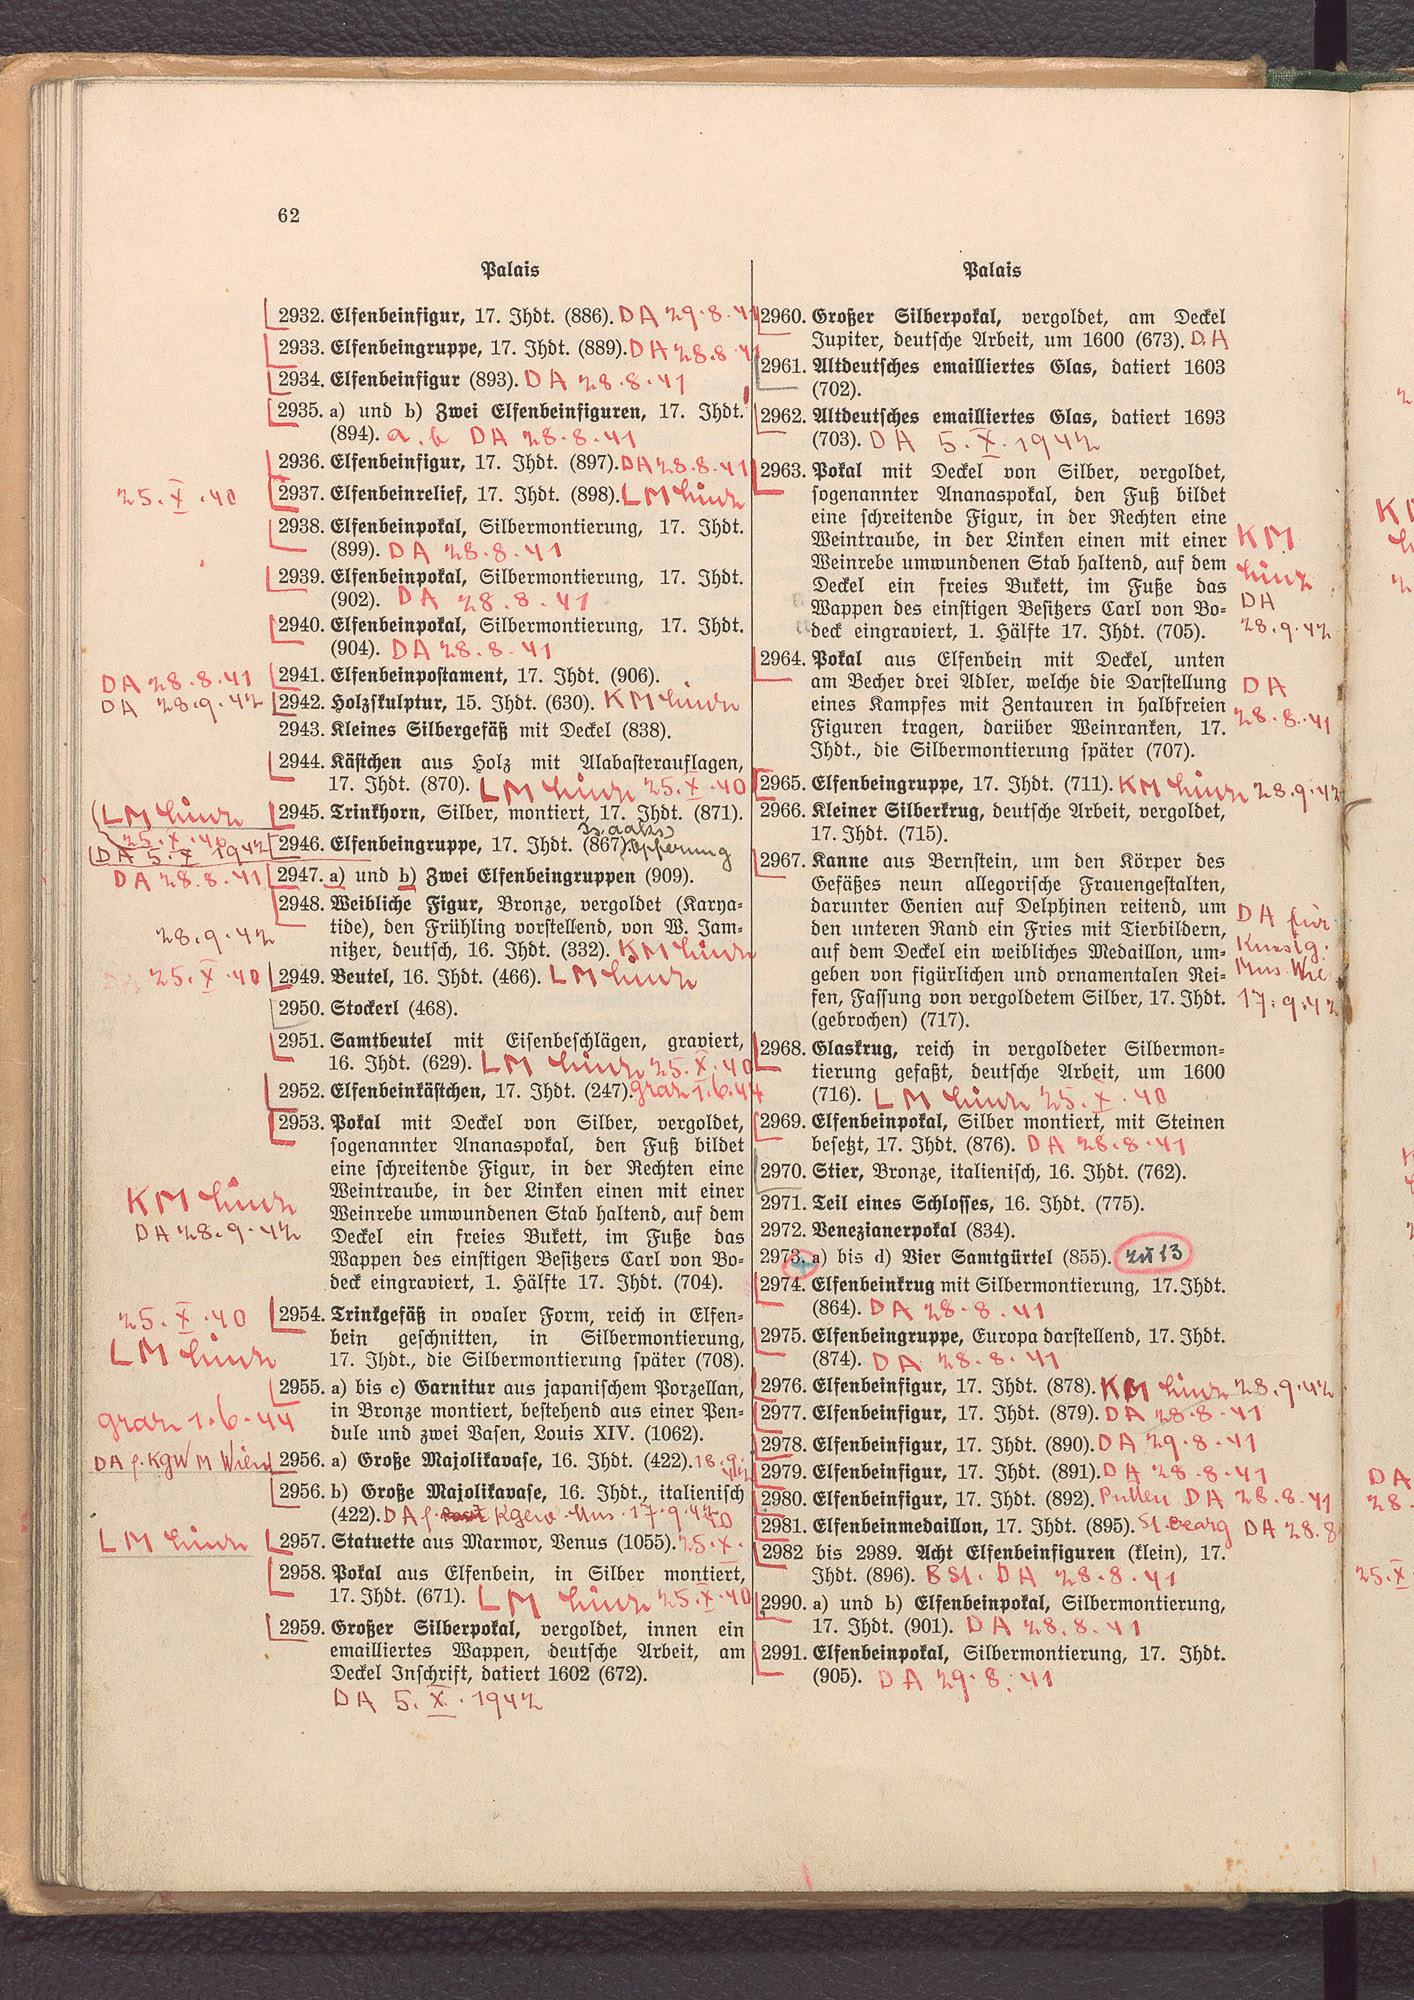 62
Palais
2932. Elfenbeinfigur, 17. Jhdt. (886). DA 29.8.41
2933. Elfenbeingruppe, 17. Jhdt. (889). DA 28.8.41
2934. Elfenbeinfigur (893). DA 28.8.41
2935. a) und b) Zwei Elfenbeinfiguren, 17. Jhdt.
(894). a. b DA 28.8.41
2936. Elfenbeinfigur, 17. Jhdt. (897). DA 28.8.41
25.X.40 2937. Elfenbeinrelief, 17. Jhdt. (898). LM Linz
2938. Elfenbeinpokal, Silbermontierung, 17. Jhdt.
(899). DA 28.8.41
2939. Elfenbeinpokal, Silbermontierung, 17. Jhdt.
(902). DA 28.8.41
2940. Elfenbeinpokal, Silbermontierung, 17. Jhdt.
(904). DA 28.8.41
DA 28.8.41 2941. Elfenbeinpostament, 17. Jhdt. (906).
DA 28.9.42 2942. Holzskulptur, 15. Jhdt. (630). KM Linz
2943. Kleines Silbergefäß mit Deckel (838).
2944. Kästchen aus Holz mit Alabasterauflagen,
17. Jhdt. (870). LM Linz 25.X.40
LM Linz 2945. Trinkhorn, Silber, montiert, 17. Jhdt. (871).
25.X.40
Isaaks
DA 5.X 1942 2946. Elfenbeingruppe, 17. Jhdt. (867). opferung
DA 28.8.41 2947. a) und b) Zwei Elfenbeingruppen (909).
2948. Weibliche Figur, Bronze, vergoldet (Karya-
tide), den Frühling vorstellend, von W. Jam-
28.9.42 nitzer, deutsch, 16. Jhdt. (332). KM Linz
25.X.40 2949. Beutel, 16. Jhdt. (466). LM Linz
2950. Stockerl (468).
2951. Samtbeutel mit Eisenbeschlägen, graviert,
16. Jhdt. (629). LM Linz 25.X.40
2952. Elfenbeinkästchen, 17. Jhdt. (247). Graz 1.6.44
2953. Pokal mit Deckel von Silber, vergoldet,
sogenannter Ananaspokal, den Fuß bildet
eine schreitende Figur, in der Rechten eine
KM Linz Weintraube, in der Linken einen mit einer
Weinrebe umwundenen Stab haltend, auf dem
DA 28.9.42 Deckel ein freies Bukett, im Fuße das
Wappen des einstigen Besitzers Carl von Bo-
deck eingraviert, 1. Hälfte 17. Jhdt. (704).
25.X.40 2954. Trinkgefäß in ovaler Form, reich in Elfen-
bein geschnitten, in Silbermontierung,
LM Linz 17. Jhdt., die Silbermontierung später (708).
2955. a) bis c) Garnitur aus japanischem Porzellan,
Graz 1.6.44 in Bronze montiert, bestehend aus einer Pen-
dule und zwei Vasen, Louis XIV. (1062).
DA f. KGW M Wien 2956. a) Große Majolikavase, 16. Jhdt. (422). 18.9.42
2956. b) Große Majolikavase, 16. Jhdt., italienisch
(422). DA f. Kgew. Mus. 17.9.42
LM Linz 2957. Statuette aus Marmor, Venus (1055). 25.X.40
2958. Pokal aus Elfenbein, in Silber montiert,
17. Jhdt. (671). LM Linz 25.X.40
2959. Großer Silberpokal, vergoldet, innen ein
emailliertes Wappen, deutsche Arbeit, am
Deckel Inschrift, datiert 1602 (672).
DA 5.X.1942
Palais
2960. Großer Silberpokal, vergoldet, am Deckel
Jupiter, deutsche Arbeit, um 1600 (673). DA
2961. Altdeutsches emailliertes Glas, datiert 1603
(702).
2962. Altdeutsches emailliertes Glas, datiert 1693
(703). DA 5.X.1942
2963. Pokal mit Deckel von Silber, vergoldet,
sogenannter Ananaspokal, den Fuß bildet
eine schreitende Figur, in der Rechten eine
Weintraube, in der Linken einen mit einer KM
Weinrebe umwundenen Stab haltend, auf dem Linz
Deckel ein freies Bukett, im Fuße das
Wappen des einstigen Besitzers Carl von Bo- DA
deck eingraviert, 1. Hälfte 17. Jhdt. (705). 28.9.42
2964. Pokal aus Elfenbein mit Deckel, unten
am Becher drei Adler, welche die Darstellung DA
eines Kampfes mit Zentauren in halbfreien 28.8.41
Figuren tragen, darüber Weinranken, 17.
Jhdt., die Silbermontierung später (707).
2965. Elfenbeingruppe, 17. Jhdt. (711). KM Linz 28.9.42
2966. Kleiner Silberkrug, deutsche Arbeit, vergoldet,
17. Jhdt. (715).
2967. Kanne aus Bernstein, um den Körper des
Gefäßes neun allegorische Frauengestalten,
darunter Genien auf Delphinen reitend, um DA für
den unteren Rand ein Fries mit Tierbildern, Kunstg.
auf dem Deckel ein weibliches Medaillon, um- Mus. Wie
geben von figürlichen und ornamentalen Rei-
fen, Fassung von vergoldetem Silber, 17. Jhdt. 17.9.42
(gebrochen) (717).
2968. Glaskrug, reich in vergoldeter Silbermon-
tierung gefaßt, deutsche Arbeit, um 1600
(716). LM Linz 25.X.40
2969. Elfenbeinpokal, Silber montiert, mit Steinen
besetzt, 17. Jhdt. (876). DA 28.8.41
2970. Stier, Bronze, italienisch, 16. Jhdt. (762).
2971. Teil eines Schlosses, 16. Jhdt. (775).
2972. Venezianerpokal (834).
2973. a) bis d) Vier Samtgürtel (855). zu 13
2974. Elfenbeinkrug mit Silbermontierung, 17. Jhdt.
(864). DA 28.8.41
2975. Elfenbeingruppe, Europa darstellend, 17. Jhdt.
(874). DA 28.8.41
2976. Elfenbeinfigur, 17. Jhdt. (878). KM Linz 28.9.42
2977. Elfenbeinfigur, 17. Jhdt. (879). DA 28.8.41
2978. Elfenbeinfigur, 17. Jhdt. (890). DA 29.8.41
2979. Elfenbeinfigur, 17. Jhdt. (891). DA 28.8.41
2980. Elfenbeinfigur, 17. Jhdt. (892). DA 28.8.41
2981. Elfenbeinmedaillon, 17. Jhdt. (895). St. Georg DA 28.8
2982 bis 2989. Acht Elfenbeinfiguren (klein), 17.
Jhdt. (896). 8 St. DA 28.8.41
2990. a) und b) Elfenbeinpokal, Silbermontierung,
17. Jhdt. (901). DA 28.8.41
2991. Elfenbeinpokal, Silbermontierung, 17. Jhdt.
(905). DA 29.8.41